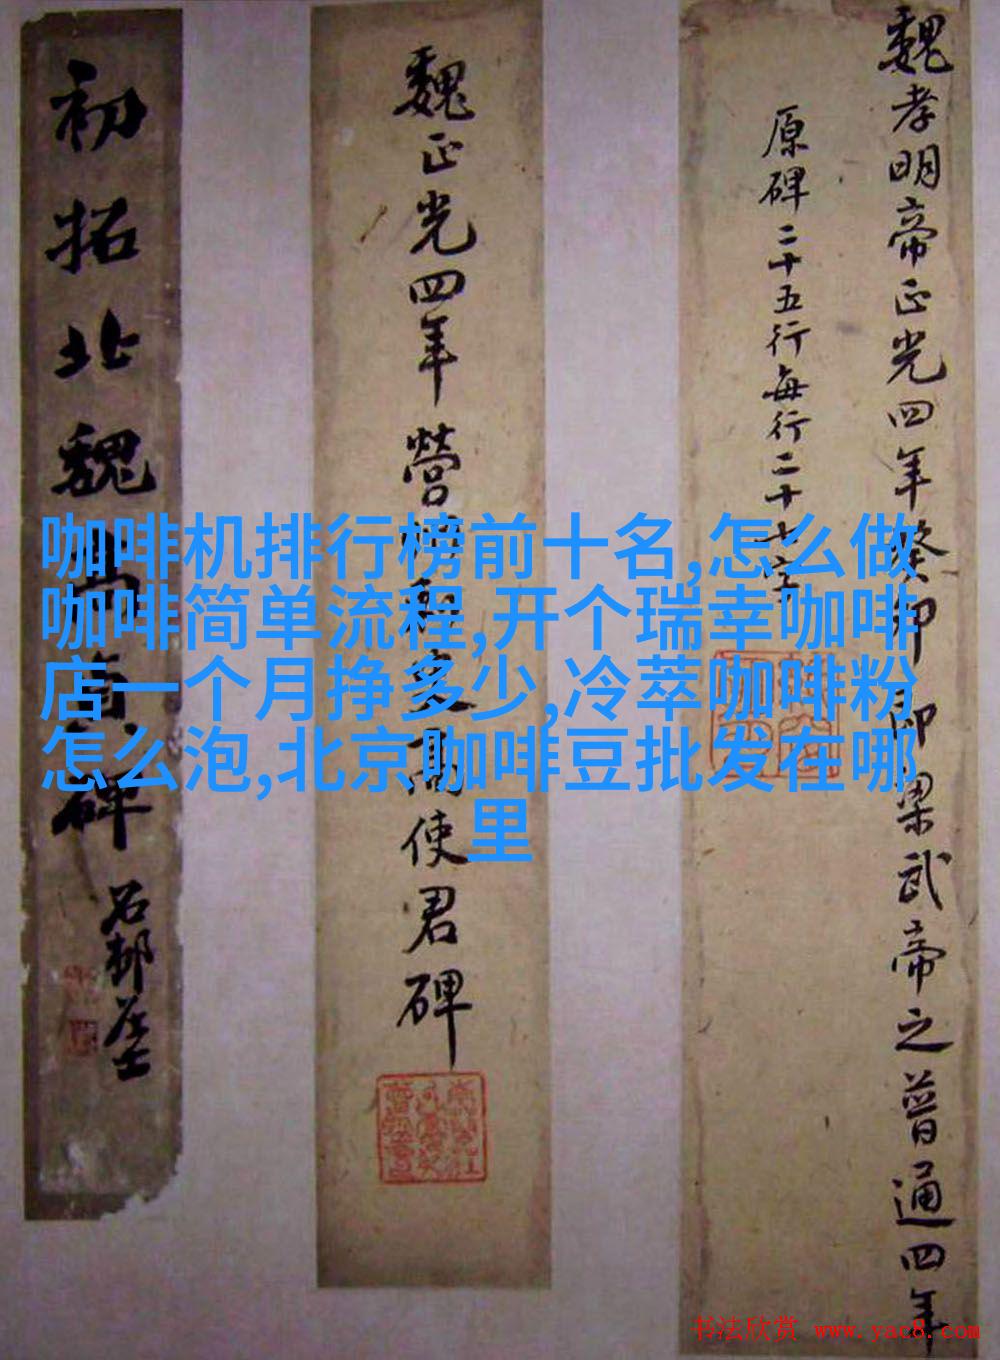 魏孝明帝正光四年癸卯即梁武帝之普通四年
原碑二十五行每行二十七字
魏正光四年營
使君碑
初拓北魏
碑
石邨居士
咖啡机排行榜前十名,怎么做
咖啡简单流程,开个瑞幸咖啡
店一个月挣多少,冷萃咖啡粉
怎么泡,北京咖啡豆批发在哪
里
书法欣赏 www.yac8.com